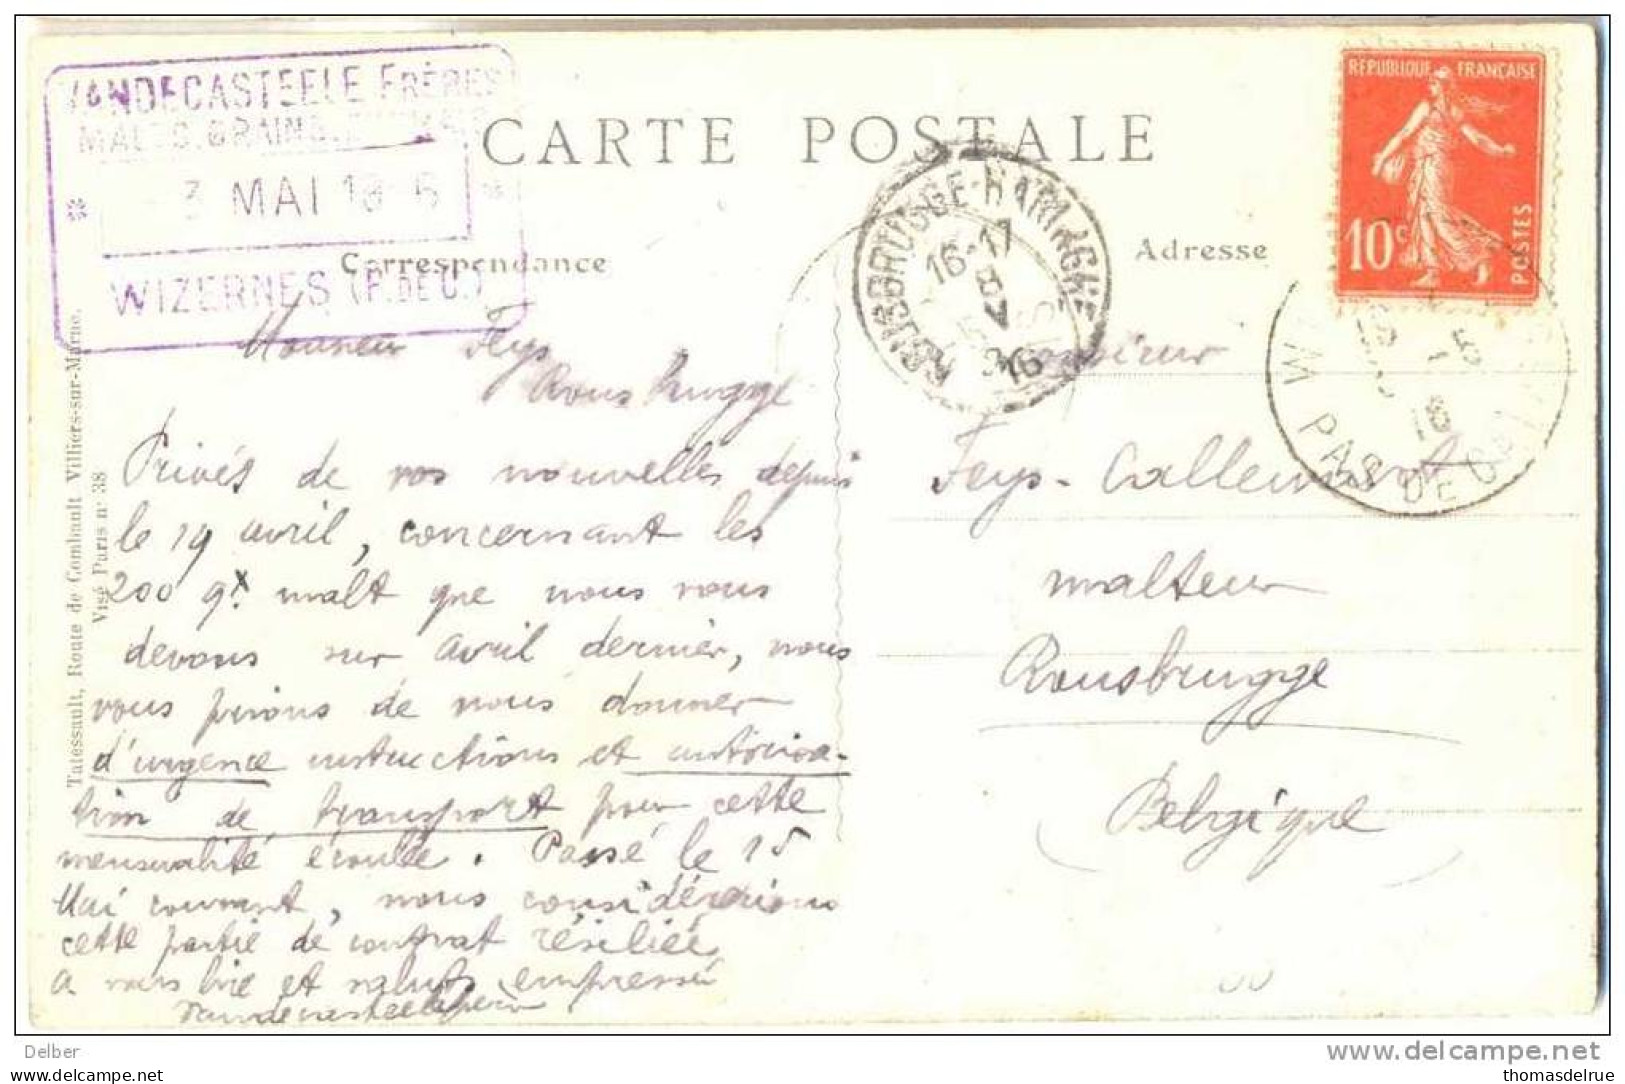 VANDECASTEELE FRÈRES
MALTS. GRAINS.
3 MAI 19 6
WIZERNES (P. DE C.)
CARTE POSTALE
Correspondance
Adresse
REPUBLIQUE FRANÇAISE
10c
POSTES
ROUSBRUGGE-HARINGHE
16-17
5 V
PAS DE CALAIS
Tatessault, Route de Combault Villiers-sur-Marne.
Visé Paris nº 38
Monsieur Feys
Rousbrugge
Privés de vos nouvelles depuis
le 19 avril, concernant les
200 qx malt que nous vous
devons sur avril dernier, nous
vous prions de nous donner
d'urgence instructions et autorisa-
tion de transport pour cette
mensualité écoulée. Passé le 15
Mai courant, nous considérerions
cette partie de contrat résiliée,
a vous lire et saluts empressés
Vandecasteele frères
Monsieur
Feys-Callewaert
malteur
Rousbrugge
(Belgique)
Delber
www.delcampe.net
thomasdelrue